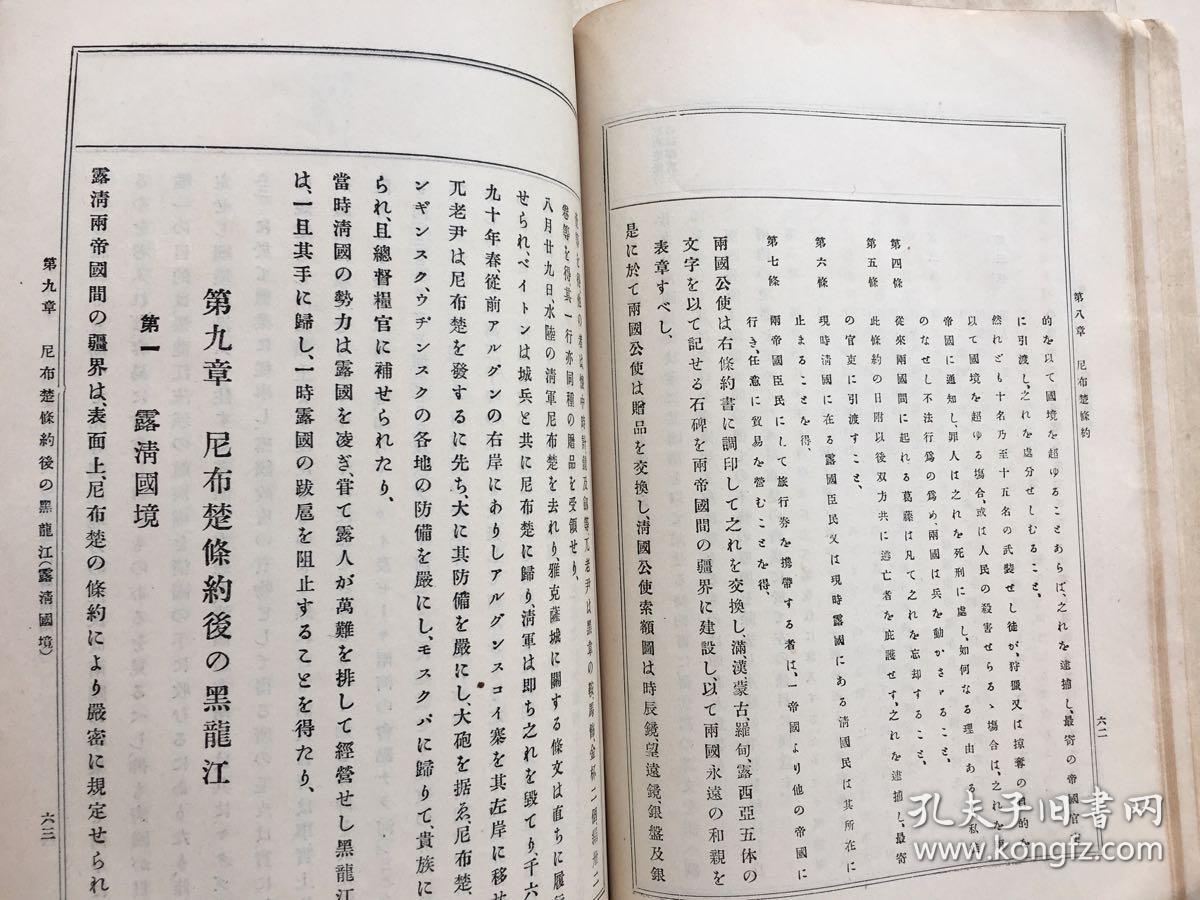 第八章 尼布楚條約
六二
的を以て國境を超ゆることあらば、之れを逮捕し、最寄の帝國官
に引渡し、之れを處分せしむること、
然れども十名乃至十五名の武裝せし徒が、狩獵又は掠奪の目的を
以て國境を超ゆる塲合、或は人民の殺害せらるゝ塲合は、之れを
帝國に通知し、罪人は之れを死刑に處し、如何なる理由ある
のなせし不法行爲の爲め、兩國は兵を動かさゞること、
第四條 從來兩國間に起れる葛藤は凡て之れを忘却すること、
第五條 此條約の日附以後双方共に逃亡者を庇護せず、之れを逮捕し、最寄
の官吏に引渡すこと、
第六條 現時淸國に在る露國臣民又は現時露國にある淸國民は其所在に
止まることを得、
第七條 兩帝國臣民にして旅行劵を携帶する者は、一帝國より他の帝國に
行き、任意に貿易を營むことを得、
兩國公使は右條約書に調印して之れを交換し、滿、漢、蒙古、羅甸、露西亞五体の
文字を以て記せる石碑を兩帝國間の疆界に建設し、以て兩國永遠の和親を
表章すべし、
是に於て兩國公使は贈品を交換し、淸國公使索額圖は時辰鏡望遠鏡、銀盤及銀
寒等を得其一行亦同種の贈品を受領せり、
八月廿九日、水陸の淸軍尼布楚を去れり、雅克薩城に關する條文は直ちに履
せられ、ベイトンは城兵と共に尼布楚に歸り淸軍は即ち之れを毀てり、千六
九十年春、從前アルグンの右岸にありしアルグンスコイ寨を其左岸に移せ
兀老尹は尼布楚を發するに先ち、大に其防備を嚴にし、大砲を据ゑ、尼布楚、
ンギンスク、ウヂンスクの各地の防備を嚴にし、モスクバに歸りて貴族に
られ、且總督糧官に補せられたり、
當時淸國の勢力は露國を凌ぎ、甞て露人が萬難を排して經營せし黑龍江
は、一旦其手に歸し、一時露國の跋扈を阻止することを得たり、
第九章 尼布楚條約後の黑龍江
第一 露淸國境
露淸兩帝國間の疆界は、表面上、尼布楚の條約により嚴密に規定せられ
第九章 尼布楚條約後の黑龍江(露淸國境)
六三
孔夫子旧书网
www.kongfz.com